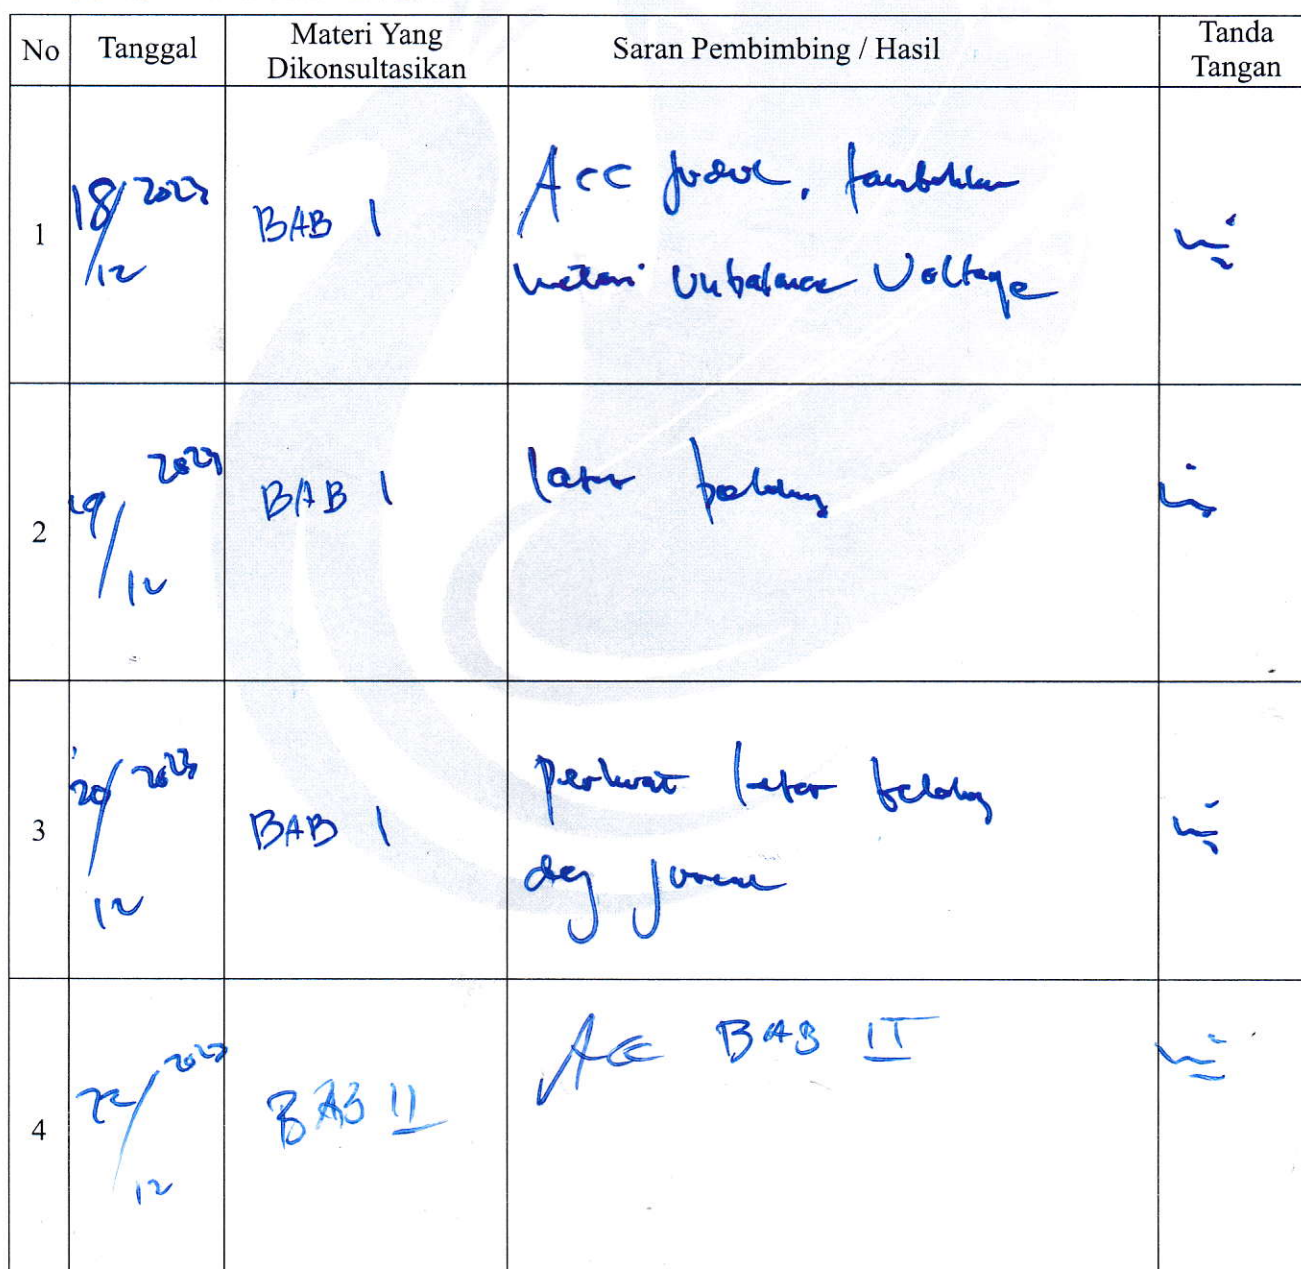 No Tanggal Materi Yang Dikonsultasikan Saran Pembimbing / Hasil Tanda Tangan
1 18/12 2023 BAB 1 Acc judul, tambahkan
materi Unbalance Voltage
2 19/12 2023 BAB 1 latar belakang
3 20/12 2023 BAB 1 perkuat latar belakang
deg jurnal
4 22/12 2023 BAB II Acc BAB II